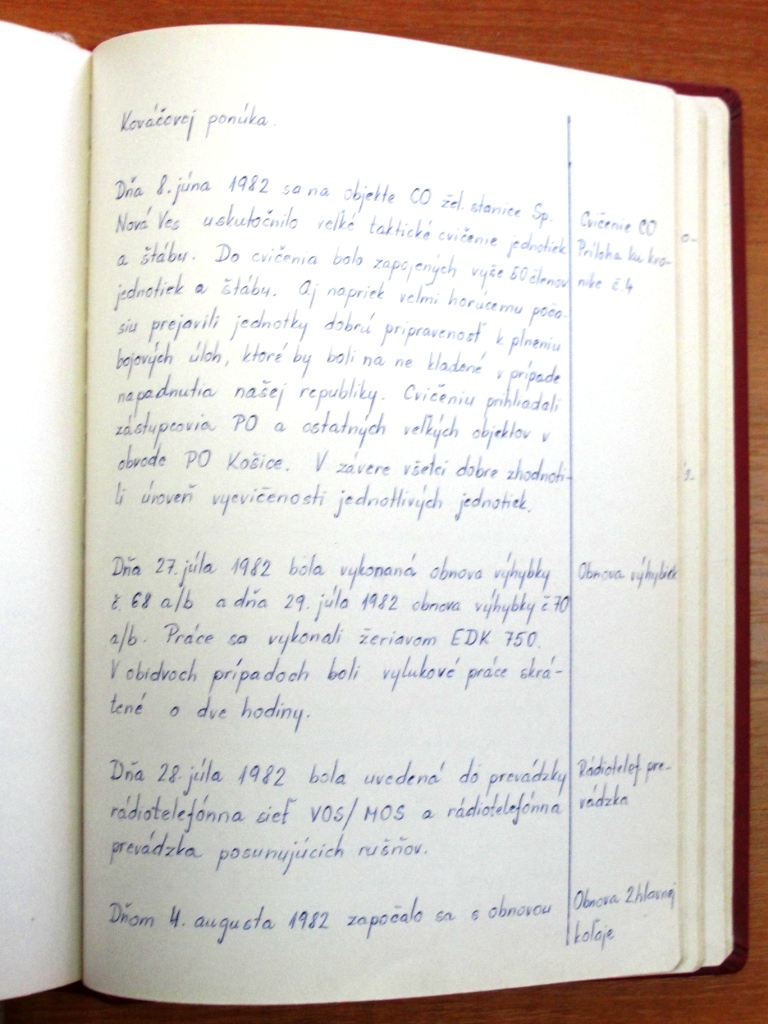 Kováčovej ponúka.
Dňa 8. júna 1982 sa na objekte CO žel. stanice Sp.
Nová Ves uskutočnilo veľké taktické cvičenie jednotiek
a štábu. Do cvičenia bolo zapojených vyše 50 členov
jednotiek a štábu. Aj napriek velmi horúcemu poča-
siu prejavili jednotky dobrú pripravenosť k plneniu
bojových úloh, ktoré by boli na ne kladené v prípade
napadnutia našej republiky. Cvičeniu prihliadali
zástupcovia PO a ostatných veľkých objektov v
obvode PO Košice. V závere všetci dobre zhodnoti-
li úroveň vycvičenosti jednotlivých jednotiek.
Cvičenie CO
Príloha ku kro-
nike č. 4
Dňa 27. júla 1982 bola vykonaná obnova výhybky
č. 68 a/b a dňa 29. júla 1982 obnova výhybky č 70
a/b. Práce sa vykonali žeriavom EDK 750.
V obidvoch prípadoch boli vylukové práce skrá-
tené o dve hodiny.
Obnova výhybiek
Dňa 28. júla 1982 bola uvedená do prevádzky
rádiotelefónna sieť VOS/MOS a rádiotelefónna
prevádzka posunujúcich rušňov.
Rádiotelef. pre-
vádzka
Dňom 4. augusta 1982 započalo sa s obnovou
Obnova 2 hlavnej
koľaje